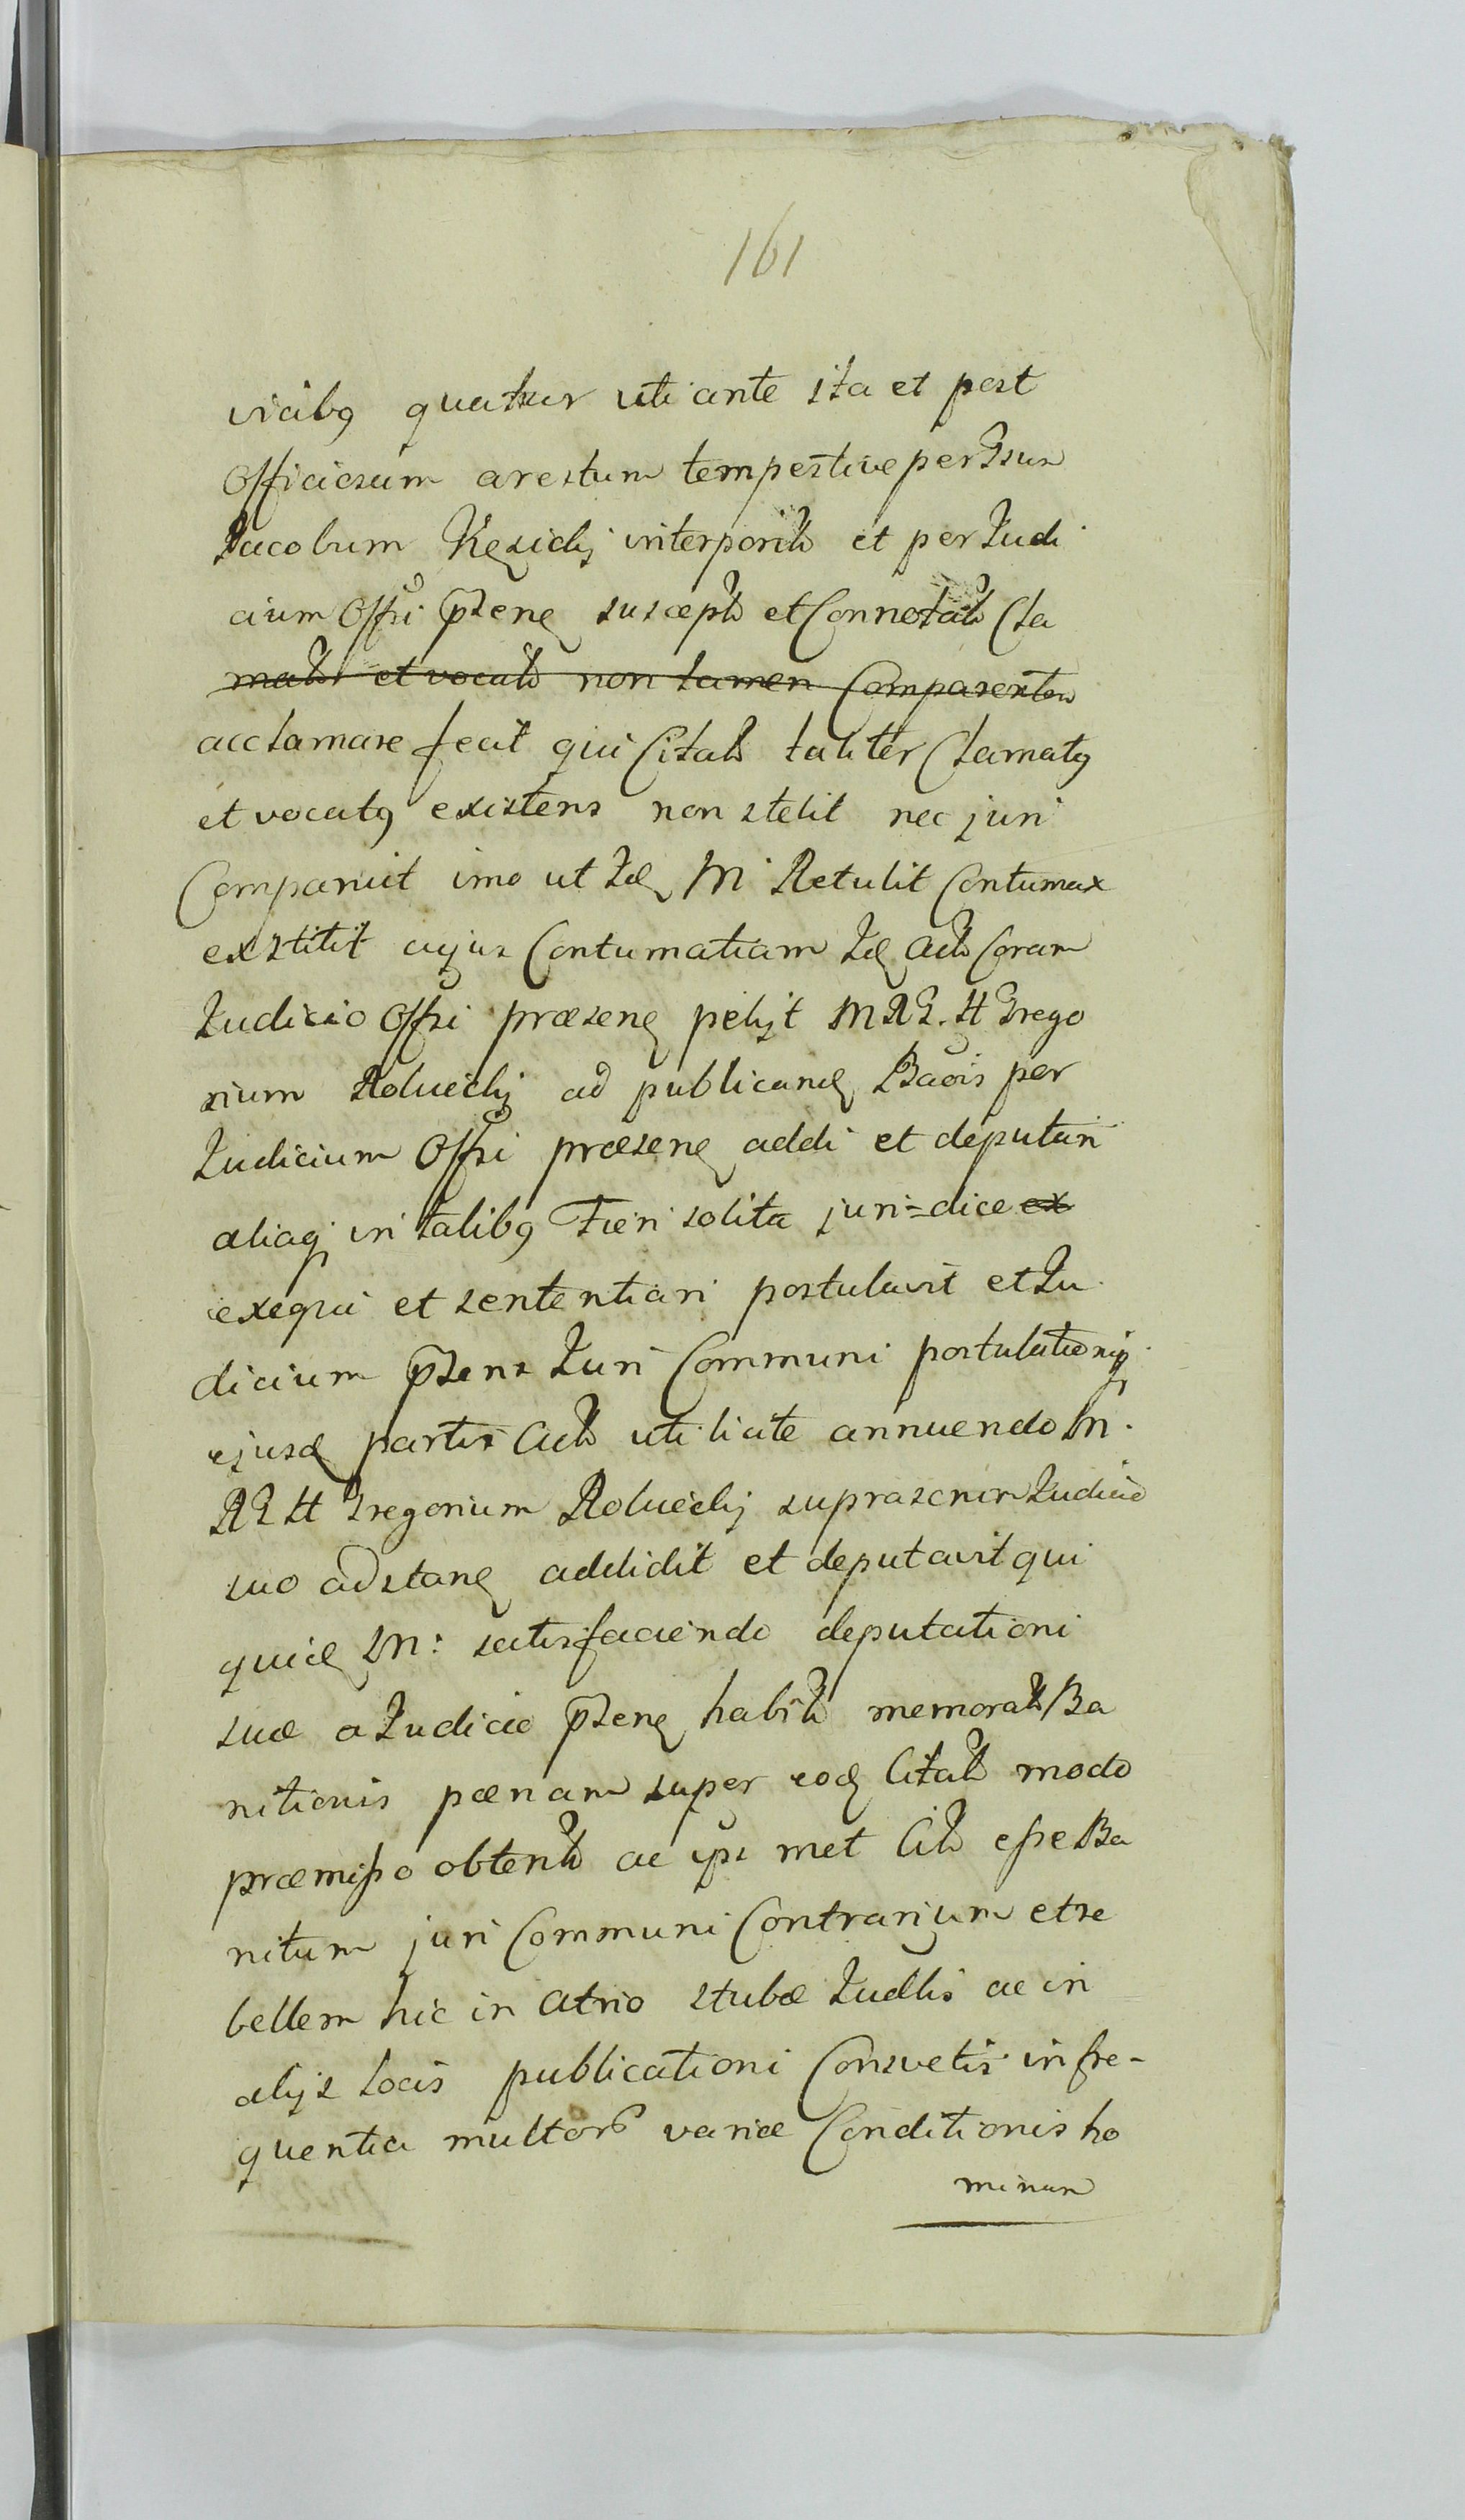 161
vicibꝯ quatuor uti ante ita et post
Officiosum arestum tempestive per Gsum
Jacobum interposit et per Judi
cium Offi pſens suscept et Connotat Cla
mat et vocat non tamen Comparentem
acclamare fecit qui Citat taliter Clamatꝯ
et vocatꝯ existens non stetit nec juri
Comparuit imo ut Id M Retulit Contumax
exstitit cujus Contumatiam Id Act Coram
Judicio Offi præsens petijt M R G. H Grego
rium ad publicand Baõis per
Judicium Offi præsens addi et deputari
aliaq in talibꝯ Fieri solita juri=dice ex
exequi et sententiari postulavit et Ju
dicium pſens Juri Communi postulationiq
ejusd partis Act uti licite annuendo M.
R G H Gregorium supra Judicio
suo adstans addidit et deputavit qui
quid M: satisfaciendo deputationi
suæ a Judicio pſens habit memorat Ba
nitionis pœnam super eod Citat modo
præmisso obtent ac ips met Cit esse Ba
nitum juri Communi Contrarium et re
bellem hic in atrio stubæ Judlis ac in
alijs locis publicationi Consvetis in fre-
quentia multor variæ Conditionis ho
minum